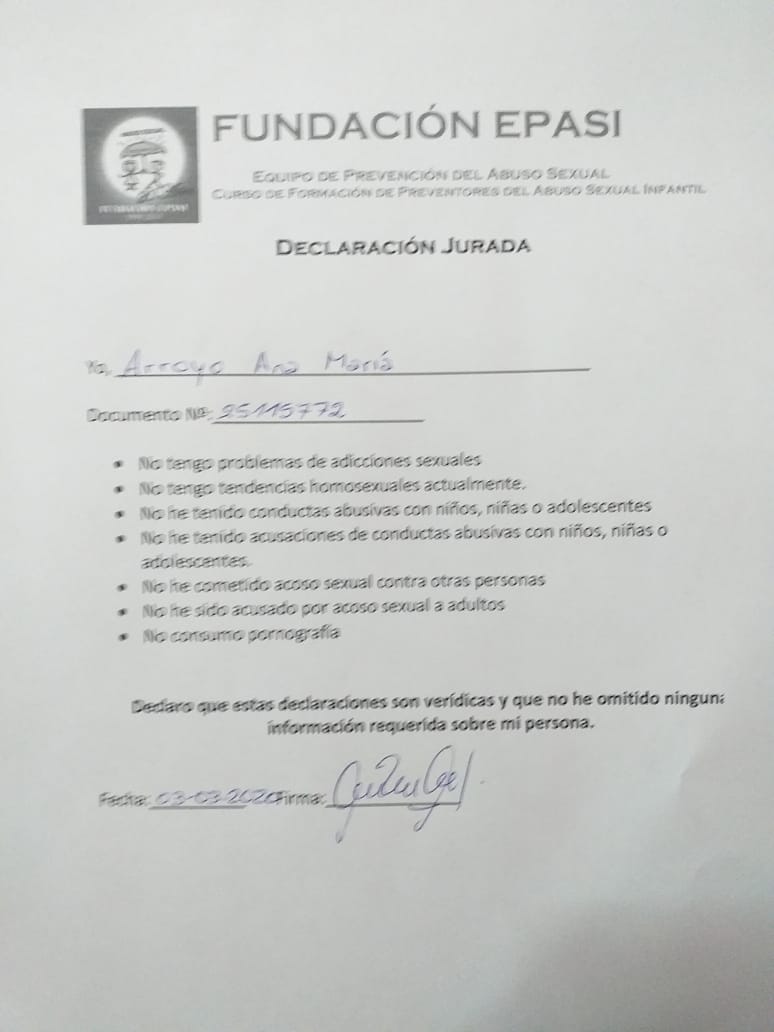 FUNDACIÓN EPASI
EQUIPO DE PREVENCIÓN DEL ABUSO SEXUAL
CURSO DE FORMACIÓN DE PREVENTORES DEL ABUSO SEXUAL INFANTIL
DECLARACIÓN JURADA
Yo, Arroyo Ana María
Documento Nº: 25115772
• No tengo problemas de adicciones sexuales
• No tengo tendencias homosexuales actualmente.
• No he tenido conductas abusivas con niños, niñas o adolescentes
• No he tenido acusaciones de conductas abusivas con niños, niñas o
adolescentes.
• No he cometido acoso sexual contra otras personas
• No he sido acusado por acoso sexual a adultos
• No consumo pornografía
Declaro que estas declaraciones son verídicas y que no he omitido ninguna
información requerida sobre mi persona.
Fecha: 03-03-2020 Firma: